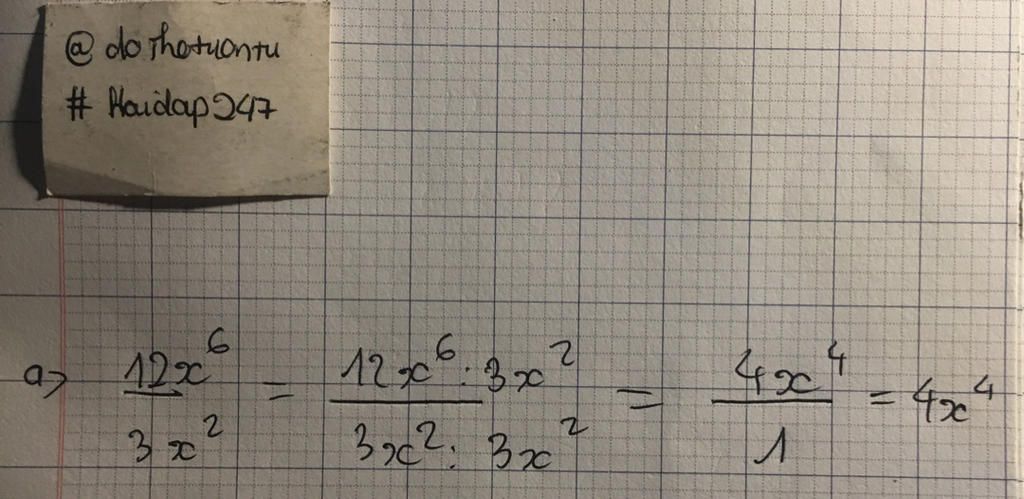 @ dothetuontu
# Hoidap247
a) 12x⁶ / 3x² = 12x⁶ : 3x² / 3x² : 3x² = 4x⁴ / 1 = 4x⁴